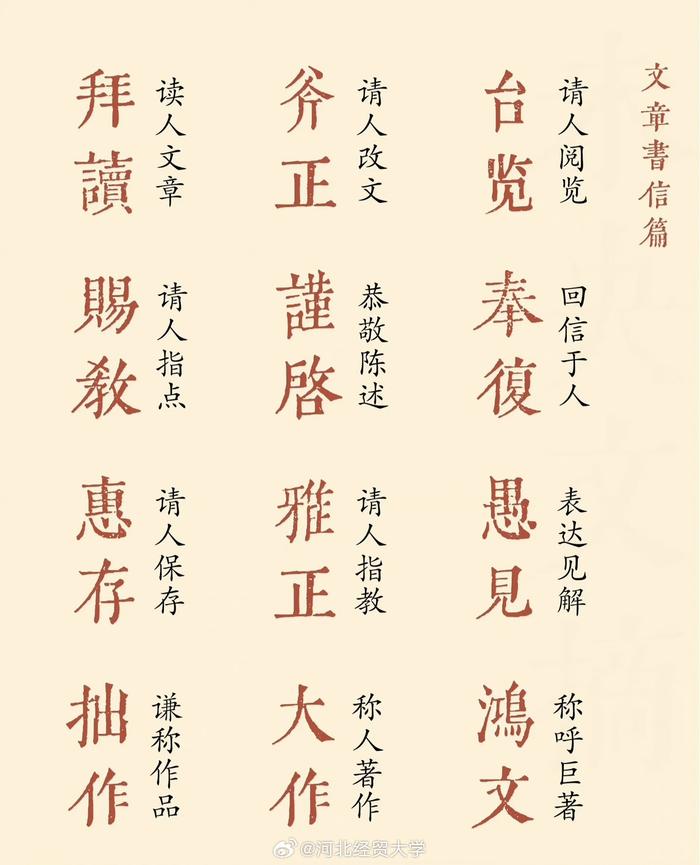 文章書信篇
台览
请人阅览
斧正
请人改文
拜讀
读人文章
奉復
回信于人
謹啓
恭敬陈述
賜教
请人指点
愚見
表达见解
雅正
请人指教
惠存
请人保存
鴻文
称呼巨著
大作
称人著作
拙作
谦称作品
@河北经贸大学